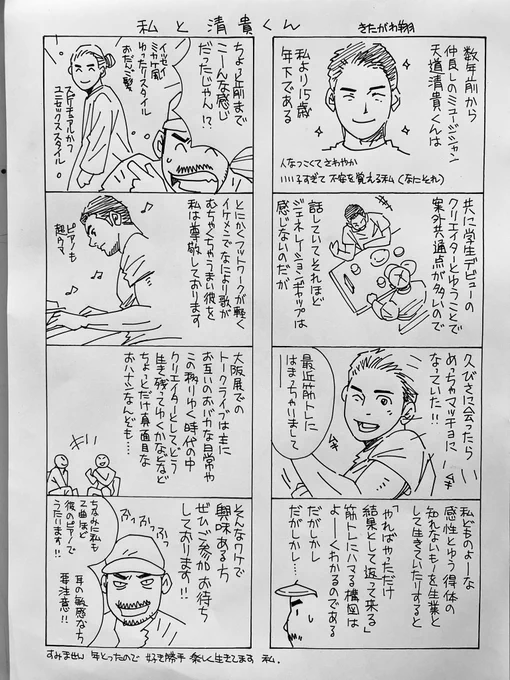 私と清貴くん
きたがわ翔
数年前から
仲良しのミュージシャン
天道清貴くんは
私より15歳
年下である
人なつっこくてさわやか
いい人すぎて不安を覚える私(なにそれ)
共に学生デビューの
クリエイターとゆうことで
案外共通点が多いので
話していてそれほど
ジェネレーションギャップは
感じないのだが
久びさに会ったら
めっちゃマッチョに
なっていた!!
最近筋トレに
はまっちゃいまして
私どものよーな
感性とゆう得体の
知れないもーを生業と
して生きていたりすると
「やればやっただけ
結果として返って来る」
筋トレにハマる構図は
よーくわかるのである
だがしかし
だがしかし…
ちょい前まで
こーんな感じ
だったじゃん!?
イッセイ
ミヤケ風
ゆったりスタイル
おだんご髪
スピリチュアルかつ
ユニセックススタイル。
とにかくフットワークが軽く
イケメンでなにより歌が
むちゃくちゃうまい彼を
私は尊敬しております
ピアノも
超ウマ
大阪展での
トークライブは主に
お互いのおバカな日常や
この移りゆく時代の中
クリエイターとして、どう
生き残ってゆくかなどなど
ちょーっとだけ真面目な
おハナシなんども…
そんなワケで
興味あるち
ぜひご参加お待ち
しております!!
ふっふっふっ
ちなみに私も
2曲ほど
彼のピアノで
うたいます!!
耳の敏感なち
要注意!!
すみません 年とったので 好き勝手 楽しく生きてます 私.